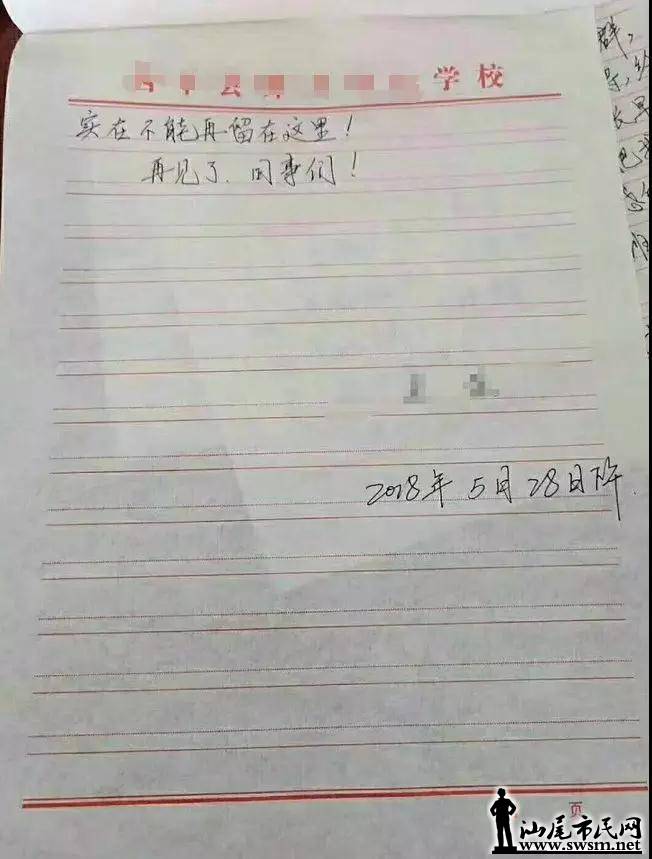 学校
实在不能再留在这里！
再见了、同事们！
2018年5月28日下午.
页
汕尾市民网
www.swsm.net